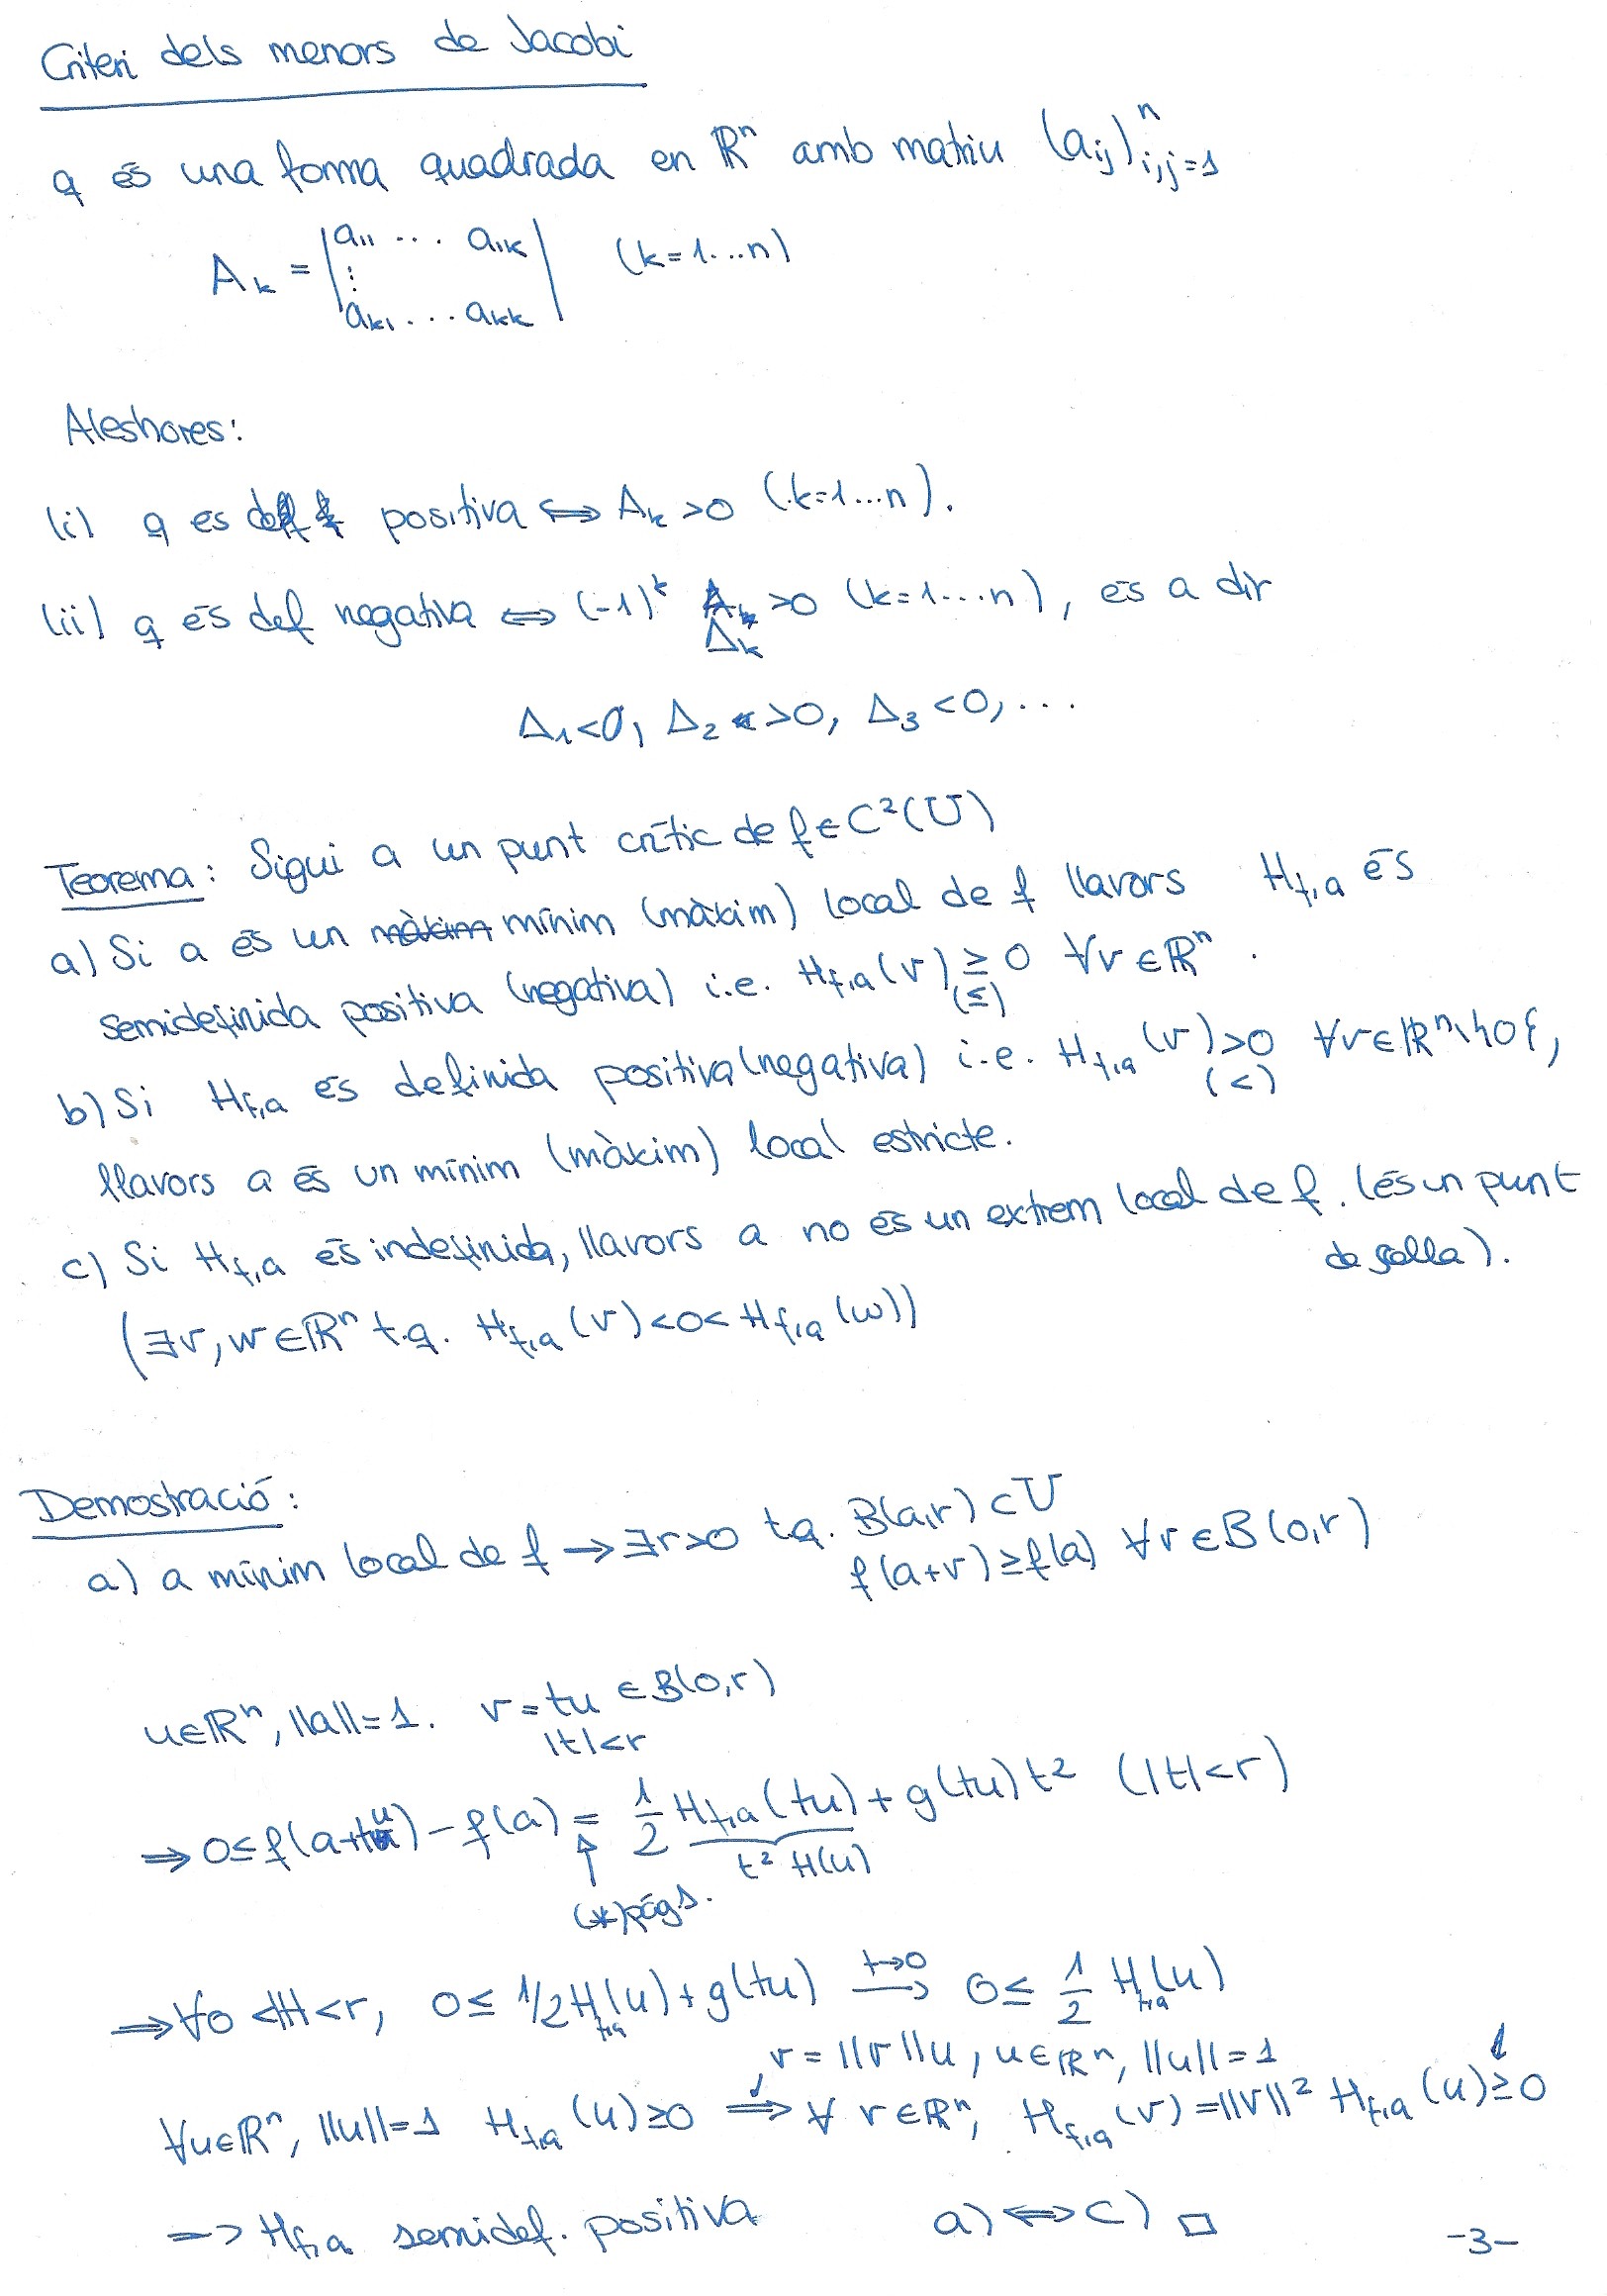 Criteri dels menors de Jacobi
q és una forma quadrada en ℝⁿ amb matriu (aᵢⱼ)ⁿᵢ,ⱼ₌₁
Aₖ = |a₁₁ ... a₁ₖ| (k=1...n)
⋮
aₖ₁ ... aₖₖ
Aleshores:
(i) q es def positiva ⟺ Aₖ >0 (k=1...n).
(ii) q és def negativa ⟺ (-1)ᵏ Aₖ >0 (k=1...n), és a dir
Δₖ
Δ₁<0, Δ₂ >0, Δ₃ <0, ...
Teorema: Sigui a un punt crític de f∈C²(U)
a) Si a és un màxim mínim (màxim) local de f llavors H_{f,a} és
semidefinida positiva (negativa) i.e. H_{f,a}(v) ≥ 0 ∀v∈ℝⁿ.
(≤)
b) Si H_{f,a} és definida positiva (negativa) i.e. H_{f,a}(v)>0 ∀v∈ℝⁿ\{0},
(<)
llavors a és un mínim (màxim) local estricte.
c) Si H_{f,a} és indefinida, llavors a no és un extrem local de f. (és un punt
de sella).
(∃v,w∈ℝⁿ t.q. H_{f,a}(v)<0<H_{f,a}(w))
Demostració:
a) a mínim local de f → ∃r>0 t.q. B(a,r)⊂U
f(a+v)≥f(a) ∀v∈B(0,r)
u∈ℝⁿ, ||a||=1. v = tu ∈B(0,r)
|t|<r
⟹ 0≤f(a+tu)-f(a) = 1/2 H_{f,a}(tu) + g(tu)t² (|t|<r)
t² H(u)
(*) pág 1.
⟹ ∀0<|t|<r, 0≤ 1/2 H_{f,a}(u)+g(tu) t→0 ⟶ 0≤ 1/2 H_{f,a}(u)
v = ||v||u, u∈ℝⁿ, ||u||=1
∀u∈ℝⁿ, ||u||=1 H_{f,a}(u)≥0 ⟹ ∀ v∈ℝⁿ, H_{f,a}(v)=||v||² H_{f,a}(u)≥0
⟶ H_{f,a} semidef. positiva a)⟺c) □
-3-